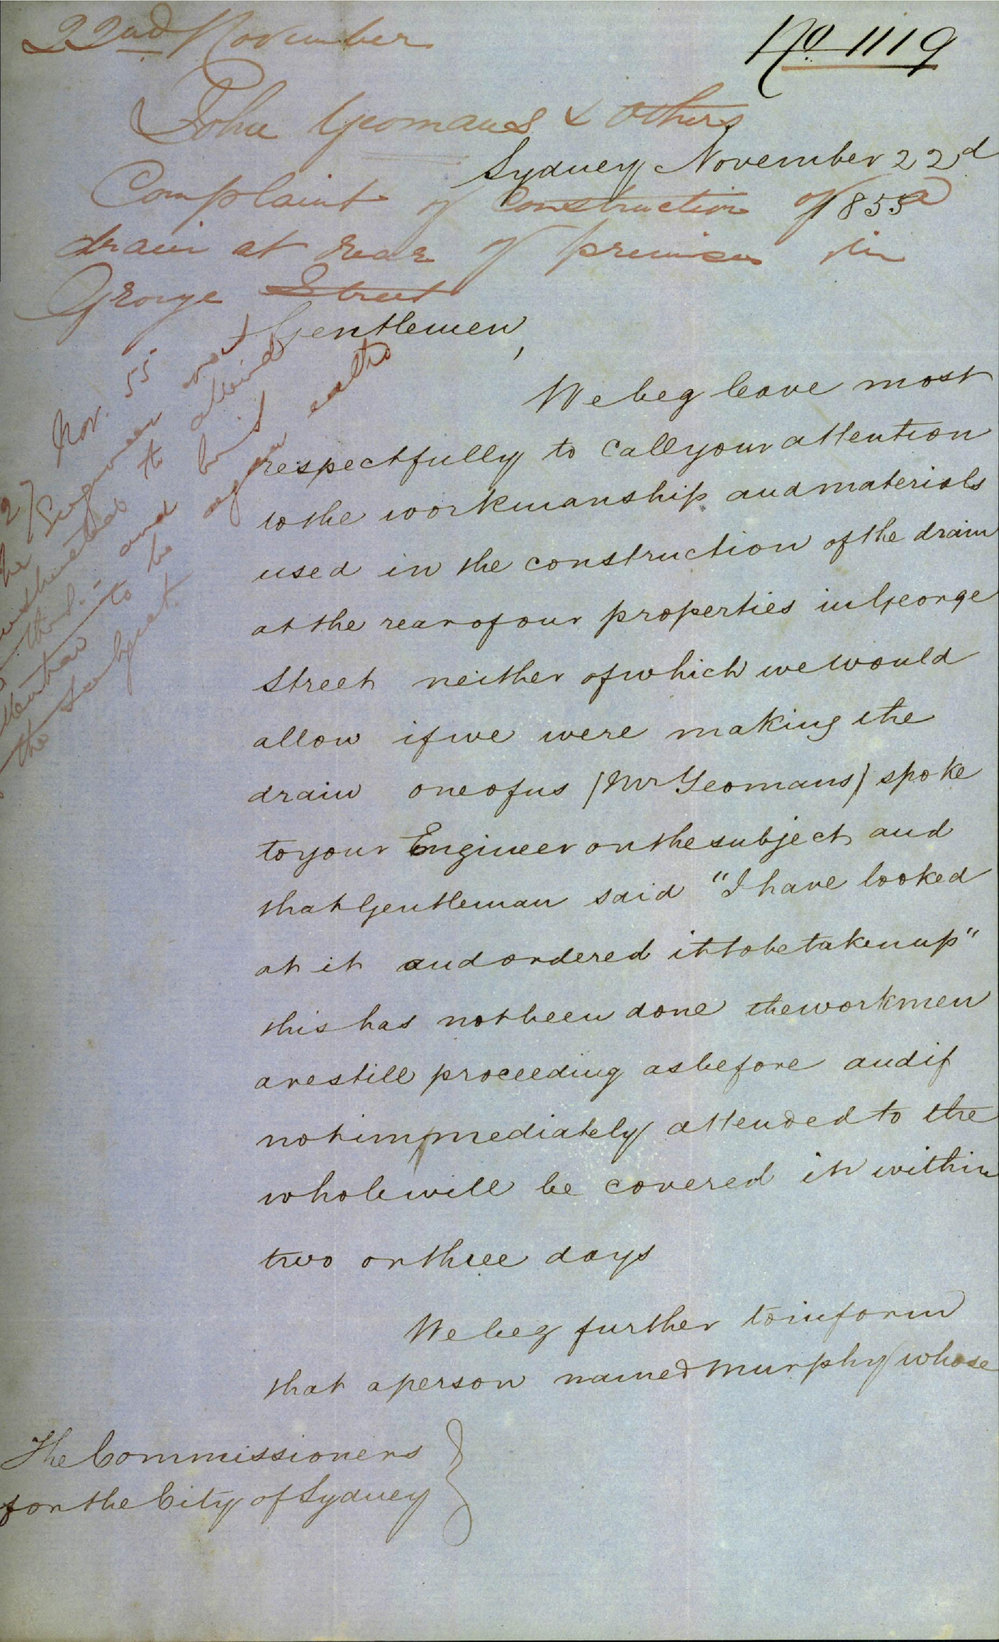 22nd November
No 1119
John Yeomans & others
Sydney November 22d
Complaint of Construction of a
1855
drain at rear of premises in
George Street
Gentlemen,
We beg leave most
respectfully to call your attention
to the workmanship and materials
used in the construction of the drain
at the rear of our properties in George
Street neither of which we would
allow if we were making the
drain one of us (Mr Yeomans) spoke
to your Engineer on the subject and
that Gentleman said "I have looked
at it and ordered it to be taken up"
this has not been done the workmen
are still proceeding as before and if
not immediately attended to the
whole will be covered in within
two or three days
We beg further to inform
that a person named Murphy whose
The Commissioners
for the City of Sydney
27 Nov. 55
Engineer
instructed to attend
to this. and
to be
the subject.